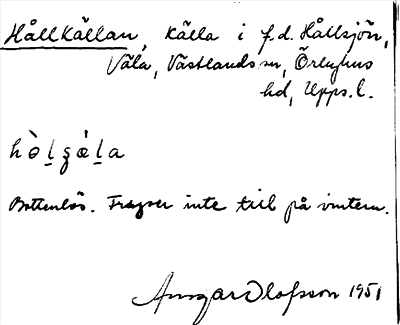 Hållkällan, källa i f.d. Hållsjön,
Väla, Västlands sn, Örbyhus
hd, Upps. l.
hò̱lʒá̱la
Bottenlös. Fryser inte till på vintern.
Ansgar Olofsson 1951